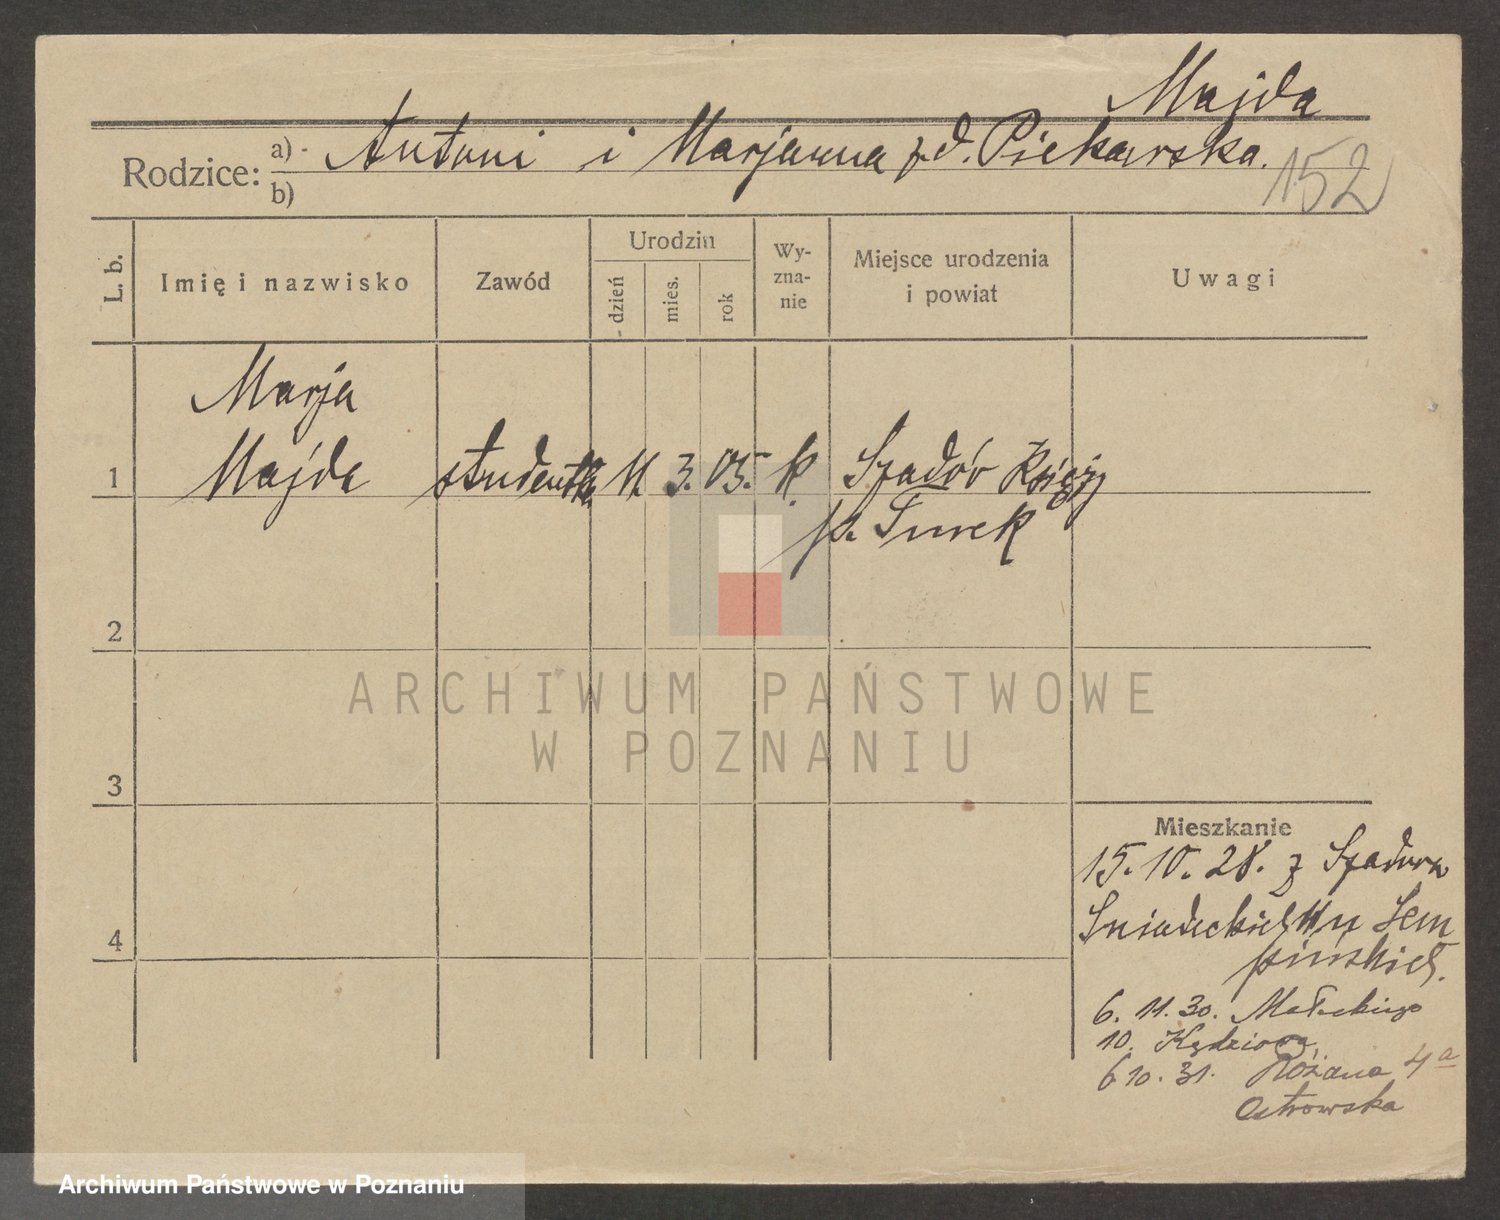 Majda
Rodzice: a) Antoni i Marjanna z d. Piekarska.
b)
152
L. b. Imię i nazwisko Zawód Urodzin dzień mies. rok Wy-zna-nie Miejsce urodzenia i powiat Uwagi
Marja
1 Majda studentka 11. 3. 05. k. Szadów Księży
p. Turek
2
ARCHIWUM PAŃSTWOWE
W POZNANIU
3
Mieszkanie
15. 10. 28. z Szadowa
Śniadeckich u Sem
4
pińskich.
6. 11. 30. Małeckiego
10. Kędziora
6 10. 31. Różana 4a
Ostrowska
Archiwum Państwowe w Poznaniu